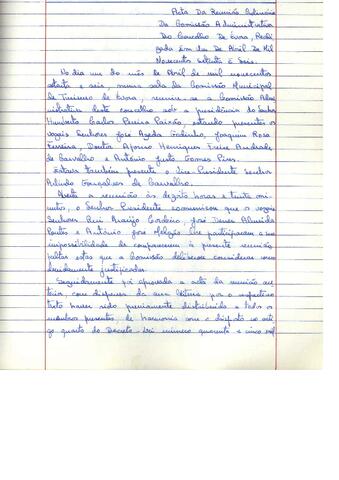 Acta Da Reunião Ordinária
Da Comissão Administrativa
Do Concelho De Évora, Reali
zada Em Um De Abril De Mil
Novecentos Setenta E Seis.
No dia um do mês de Abril de mil novecentos
setenta e seis, numa sala da Comissão Municipal
de Turismo de Évora, reuniu-se a Comissão Admi
nistrativa deste concelho sob a presidência do Senhor
Humberto Carlos Pereira Paixão, estando presentes os
vogais Senhores José Azeda Godinho, Joaquim Rosa
Ferreira, Doutor Afonso Henriques Freire Andrade
de Carvalho e António Justo Gomes Pires.
Esteve também presente o Vice-Presidente Senhor
Arlindo Gonçalves de Carvalho.
Aberta a reunião às dezoito horas e trinta mi
nutos, o Senhor Presidente comunicou que os vogais
Senhores Rui Araújo Cordeiro, José Almeida
Pontes e António José lhe participaram a sua
impossibilidade de comparecerem à presente reunião,
faltas estas que a Comissão deliberou considerar como
devidamente justificadas.
Seguidamente foi aprovada a acta da reunião an
terior, com dispensa da sua leitura por o respectivo
texto haver sido previamente distribuído a todos os
membros presentes, de harmonia com o disposto no arti
go quarto do Decreto-Lei número quarenta e cinco mil